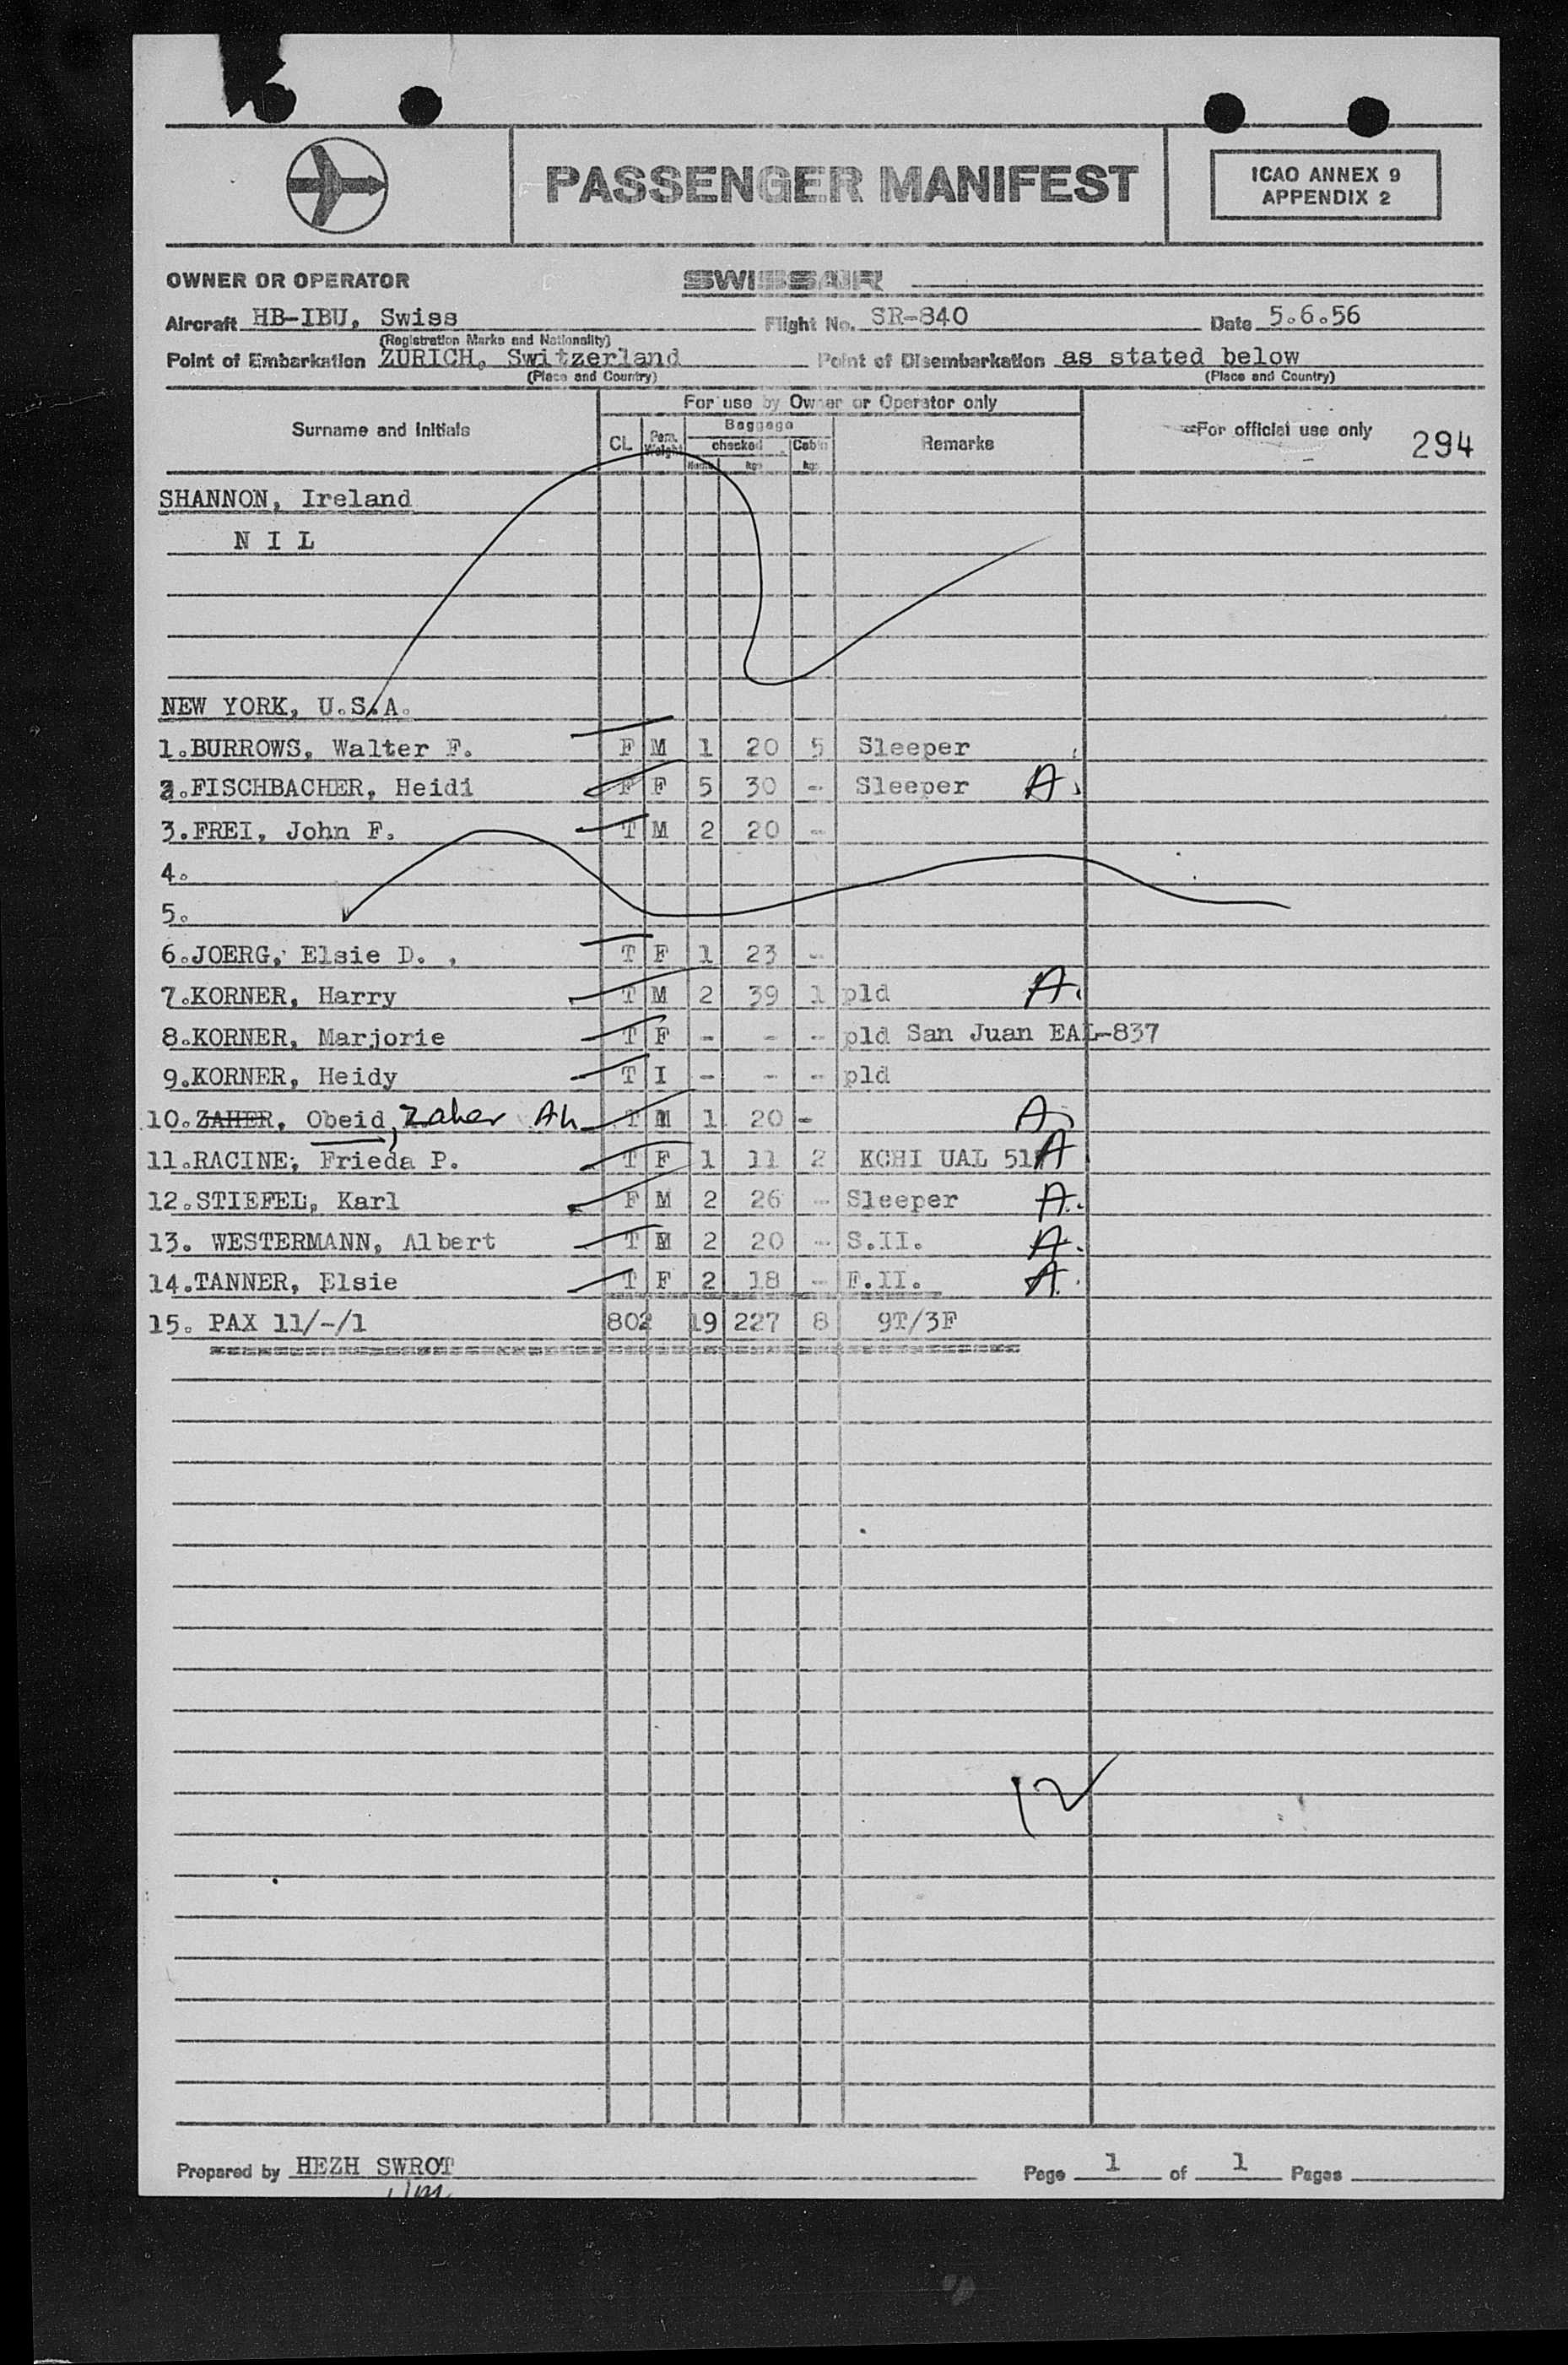 PASSENGER MANIFEST
ICAO ANNEX 9
APPENDIX 2
OWNER OR OPERATOR SWISSAIR
Aircraft HB-IBU, Swiss Flight No. SR-840 Date 5.6.56
(Registration Marks and Nationality)
Point of Embarkation ZURICH, Switzerland Point of Disembarkation as stated below
(Place and Country) (Place and Country)
For use by Owner or Operator only
Surname and Initials CL Pers. Weight Baggage checked kgs Cabin kgs Remarks For official use only 294
SHANNON, Ireland
N I L
NEW YORK, U.S.A.
1.BURROWS, Walter F. F M 1 20 5 Sleeper
2.FISCHBACHER, Heidi F F 5 30 - Sleeper A
3.FREI, John F. T M 2 20 -
4.
5.
6.JOERG, Elsie D. , T F 1 23 -
7.KORNER, Harry T M 2 39 1 pld A.
8.KORNER, Marjorie T F - - - pld San Juan EAL-837
9.KORNER, Heidy T I - - - pld
10.ZAHER, Obeid, Zaher Ah T M 1 20 - A
11.RACINE, Frieda P. T F 1 11 2 KCHI UAL A
12.STIEFEL, Karl F M 2 26 - Sleeper A.
13. WESTERMANN, Albert T M 2 20 - S.II. A.
14.TANNER, Elsie T F 2 18 - F.II. A.
15. PAX 11/-/1 802 19 227 8 9T/3F
12
Prepared by HEZH SWROT Page 1 of 1 Pages